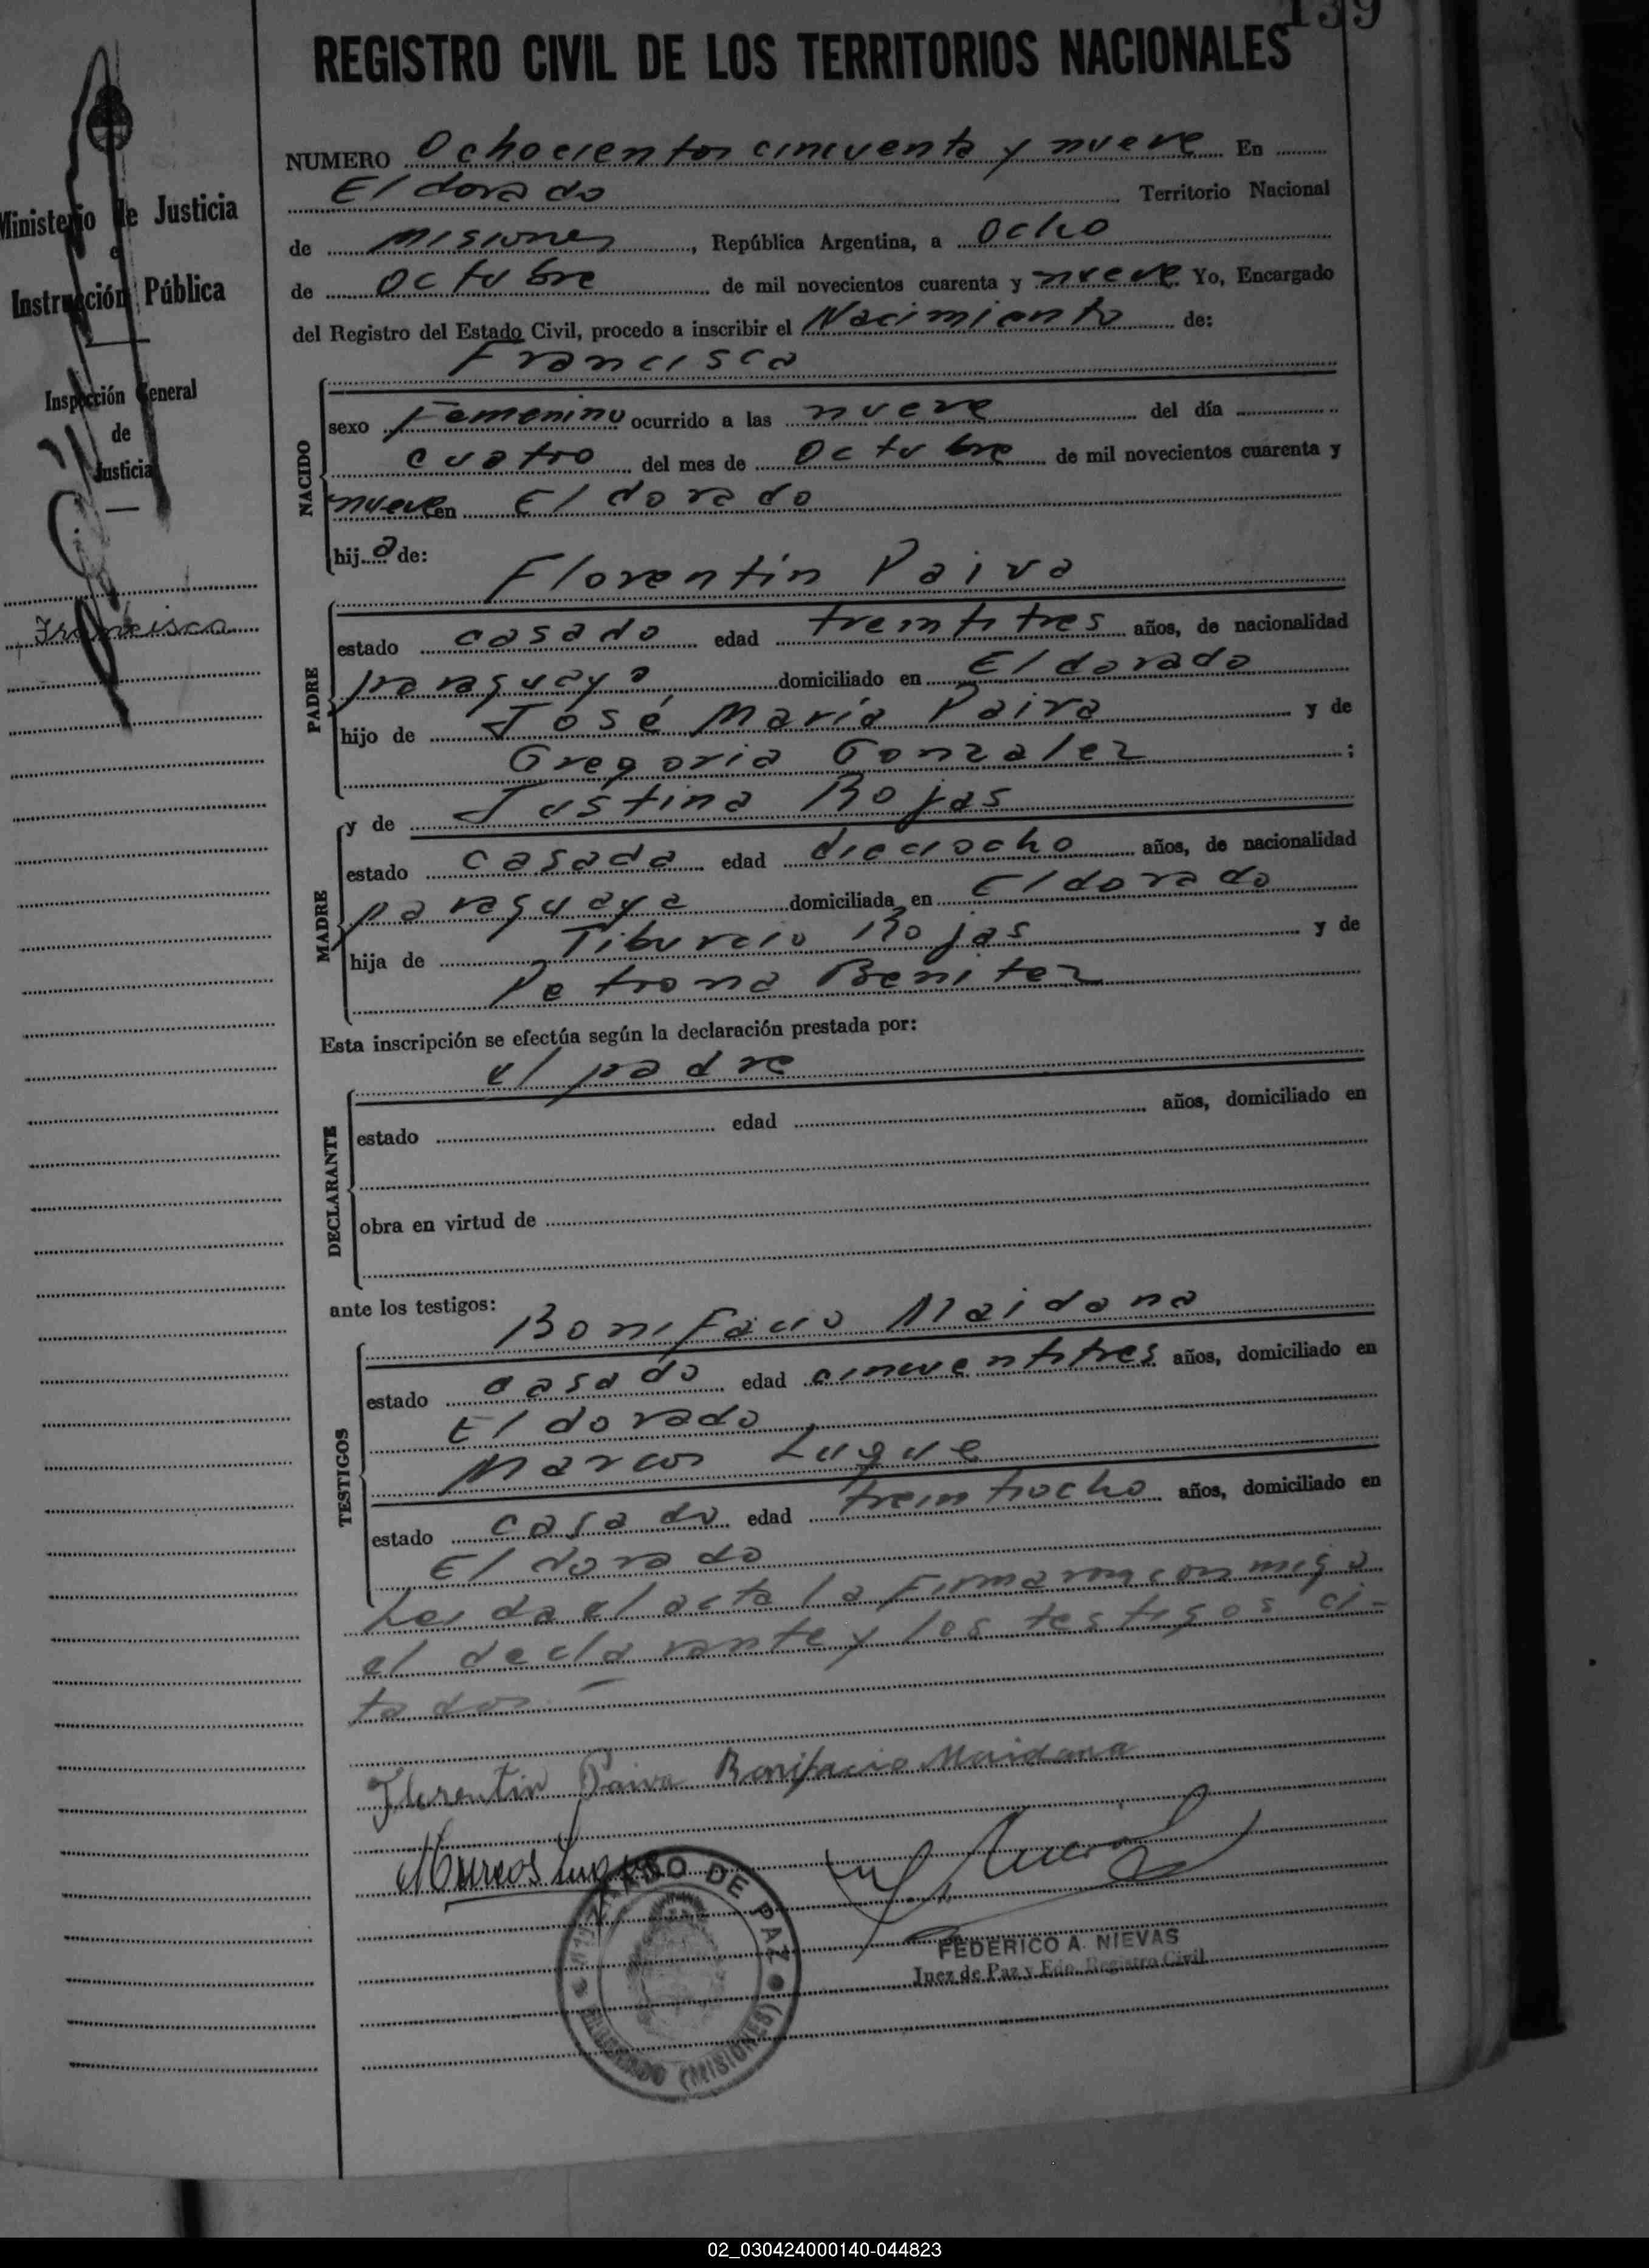 139
REGISTRO CIVIL DE LOS TERRITORIOS NACIONALES
Ministerio de Justicia
e
Instrucción Pública
Inspección General
de
Justicia
Francisca
NUMERO Ochocientos cincuenta y nueve En
Eldorado Territorio Nacional
de Misiones, República Argentina, a Ocho
de Octubre de mil novecientos cuarenta y nueve Yo, Encargado
del Registro del Estado Civil, procedo a inscribir el Nacimiento de:
Francisca
NACIDO
sexo Femenino ocurrido a las nueve del día
cuatro del mes de Octubre de mil novecientos cuarenta y
nueve en Eldorado
hij a de:
Florentín Paiva
PADRE
estado casado edad treintitres años, de nacionalidad
paraguaya domiciliado en Eldorado
hijo de José María Paiva y de
Gregoria Gonzalez ;
MADRE
y de Justina Rojas
estado casada edad dieciocho años, de nacionalidad
paraguaya domiciliada en Eldorado
hija de Tiburcio Rojas y de
Petrona Benitez
Esta inscripción se efectúa según la declaración prestada por:
el padre
DECLARANTE
estado edad años, domiciliado en
obra en virtud de
ante los testigos:
Bonifacio Maidana
TESTIGOS
estado casado edad cincuentitres años, domiciliado en
Eldorado
Marcos Luque
estado casado edad treintiocho años, domiciliado en
Eldorado
Leida el acta la Firmaron conmigo
el declarante y los testigos ci-
tados. —
Florentin Paiva Bonifacio Maidana
Marcos Luque
JUZGADO DE PAZ
ELDORADO (MISIONES)
FEDERICO A. NIEVAS
Juez de Paz y Edo. Registro Civil
02_030424000140-044823